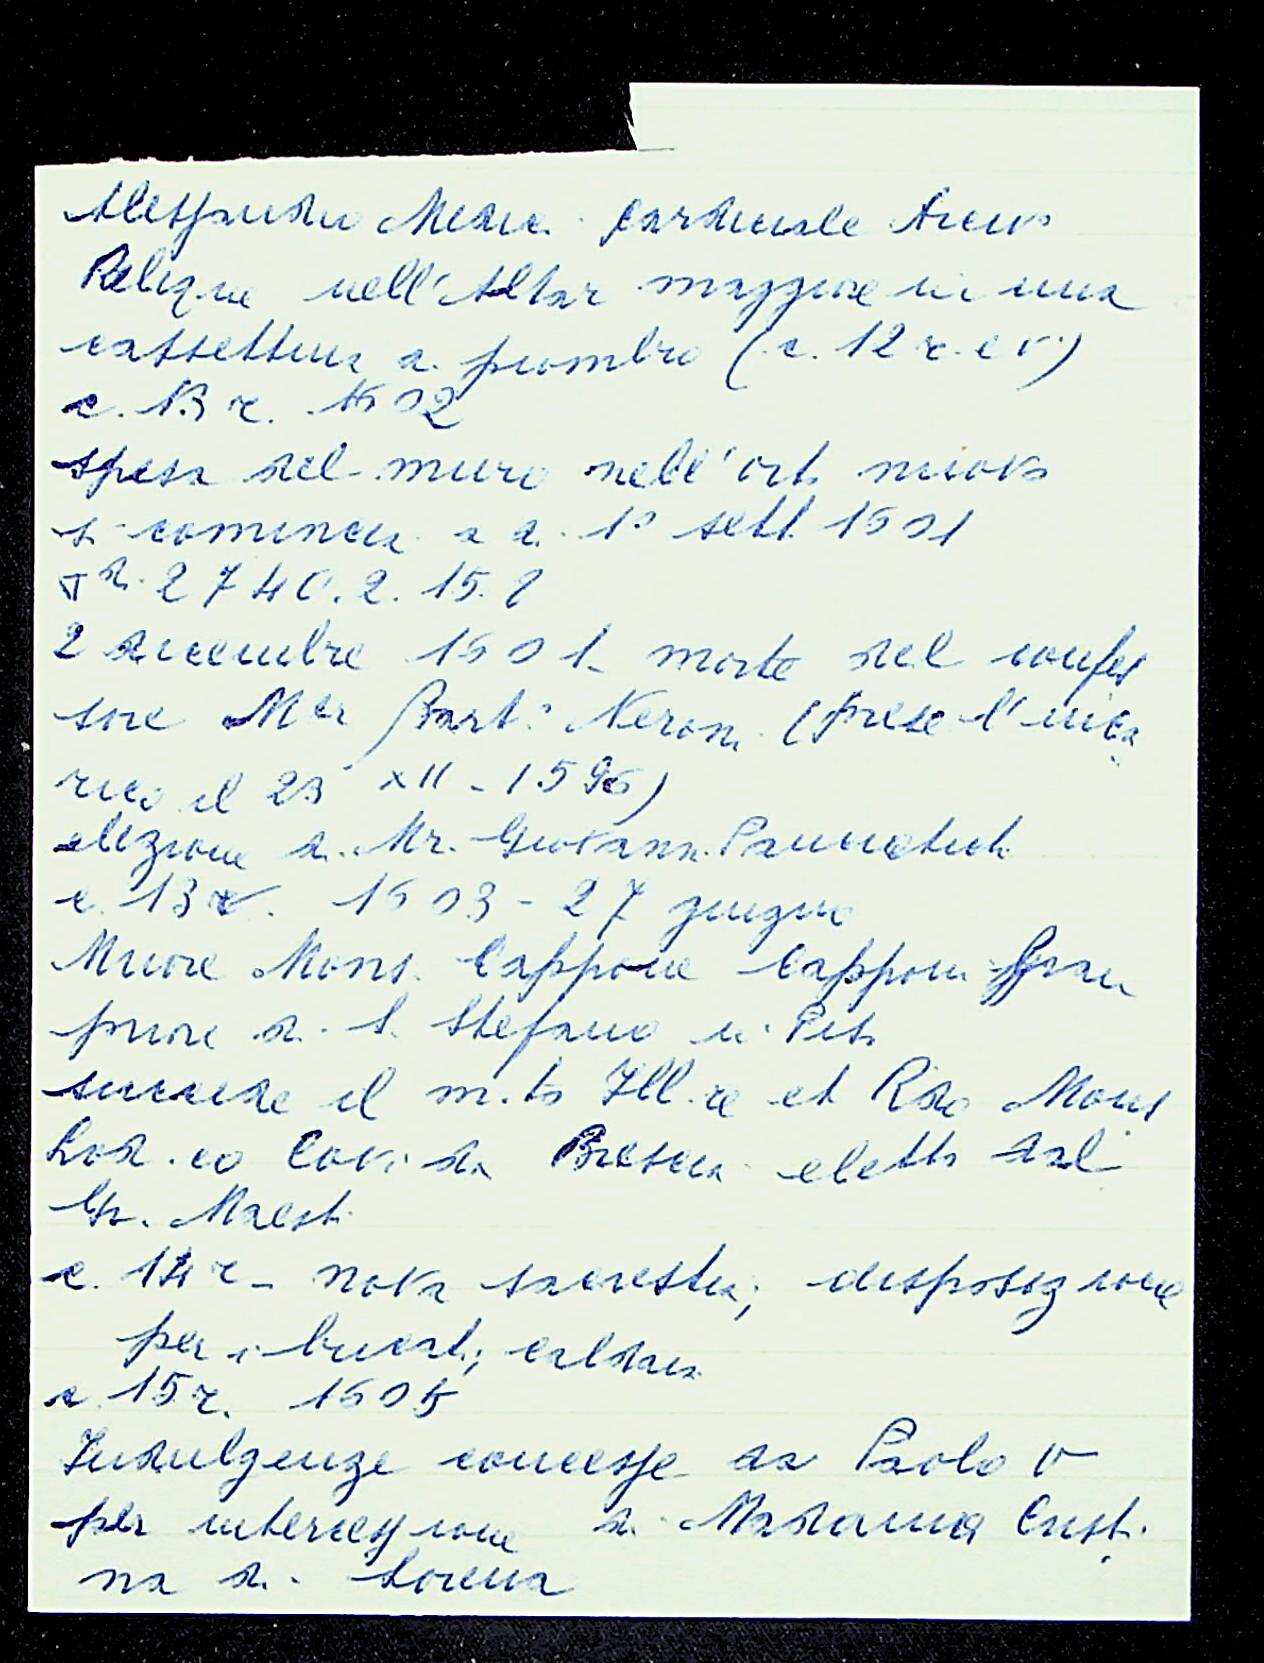 Alessandro Medici Cardinale Arciv°
Relique nell'Altar maggiore in una
cassettina di piombo (c. 12 r. e v.)
c. 13 r. 1602
spesa del muro nell'orto nuovo
si comincia a dì 1° sett. 1601
2740. 2. 15. 8
2 dicembre 1601 morte del confes
sore Mer Bart.° Neroni (prese l'inca
rico il 23 XII - 1596)
elezione di Mr. Giovanni
c. 13 r. 1603 - 27 giugno
Muore Mons. Cappone Capponi Gran
priore di S. Stefano in Pisa
succede il m.to Ill.re et Rdo Mons
Lod.co Covi da Brescia eletto dal
Gr. Maest.
c. 14 r - nova sacrestia; disposizione
per i bucati; caldaia
c. 15 r. 1605
Indulgenze concesse da Paolo V
per intercessione di Madama Cristi
na di Lorena